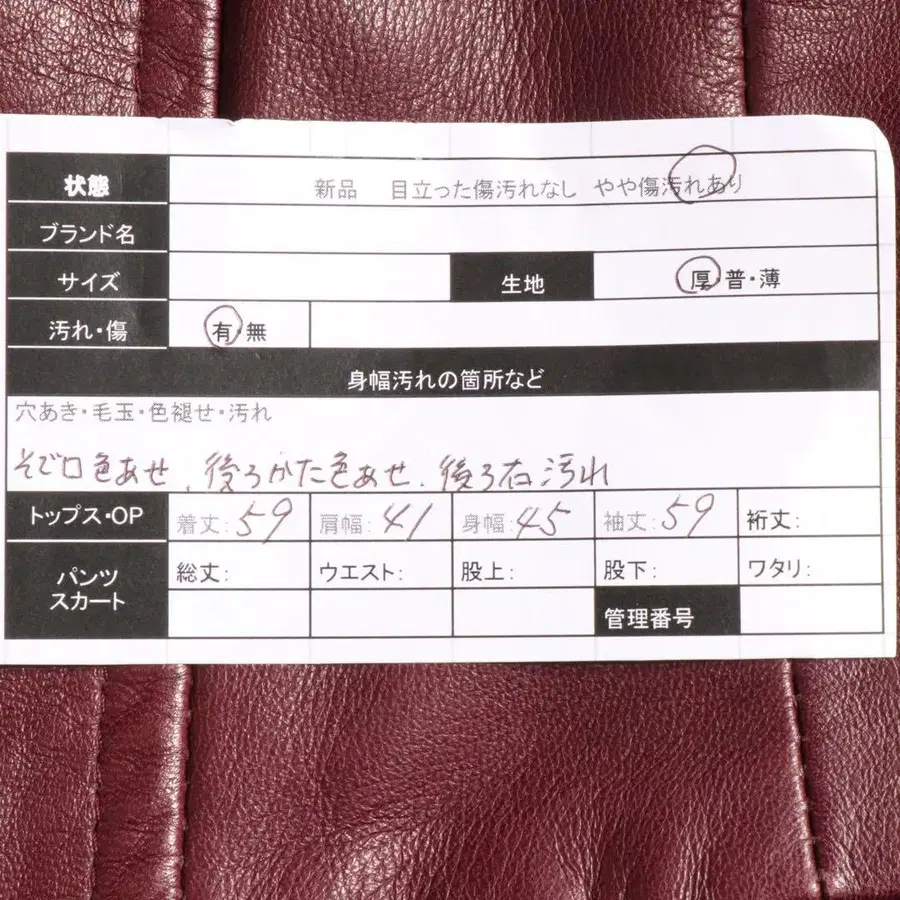 状態 新品 目立った傷汚れなし やや傷汚れあり
ブランド名
サイズ 生地 厚・普・薄
汚れ・傷 有・無
身幅汚れの箇所など
穴あき・毛玉・色褪せ・汚れ
そで口色あせ、後ろかた色あせ、後ろ右汚れ
トップス・OP 着丈:59 肩幅:41 身幅:45 袖丈:59 裄丈:
パンツ スカート 総丈: ウエスト: 股上: 股下: ワタリ:
管理番号